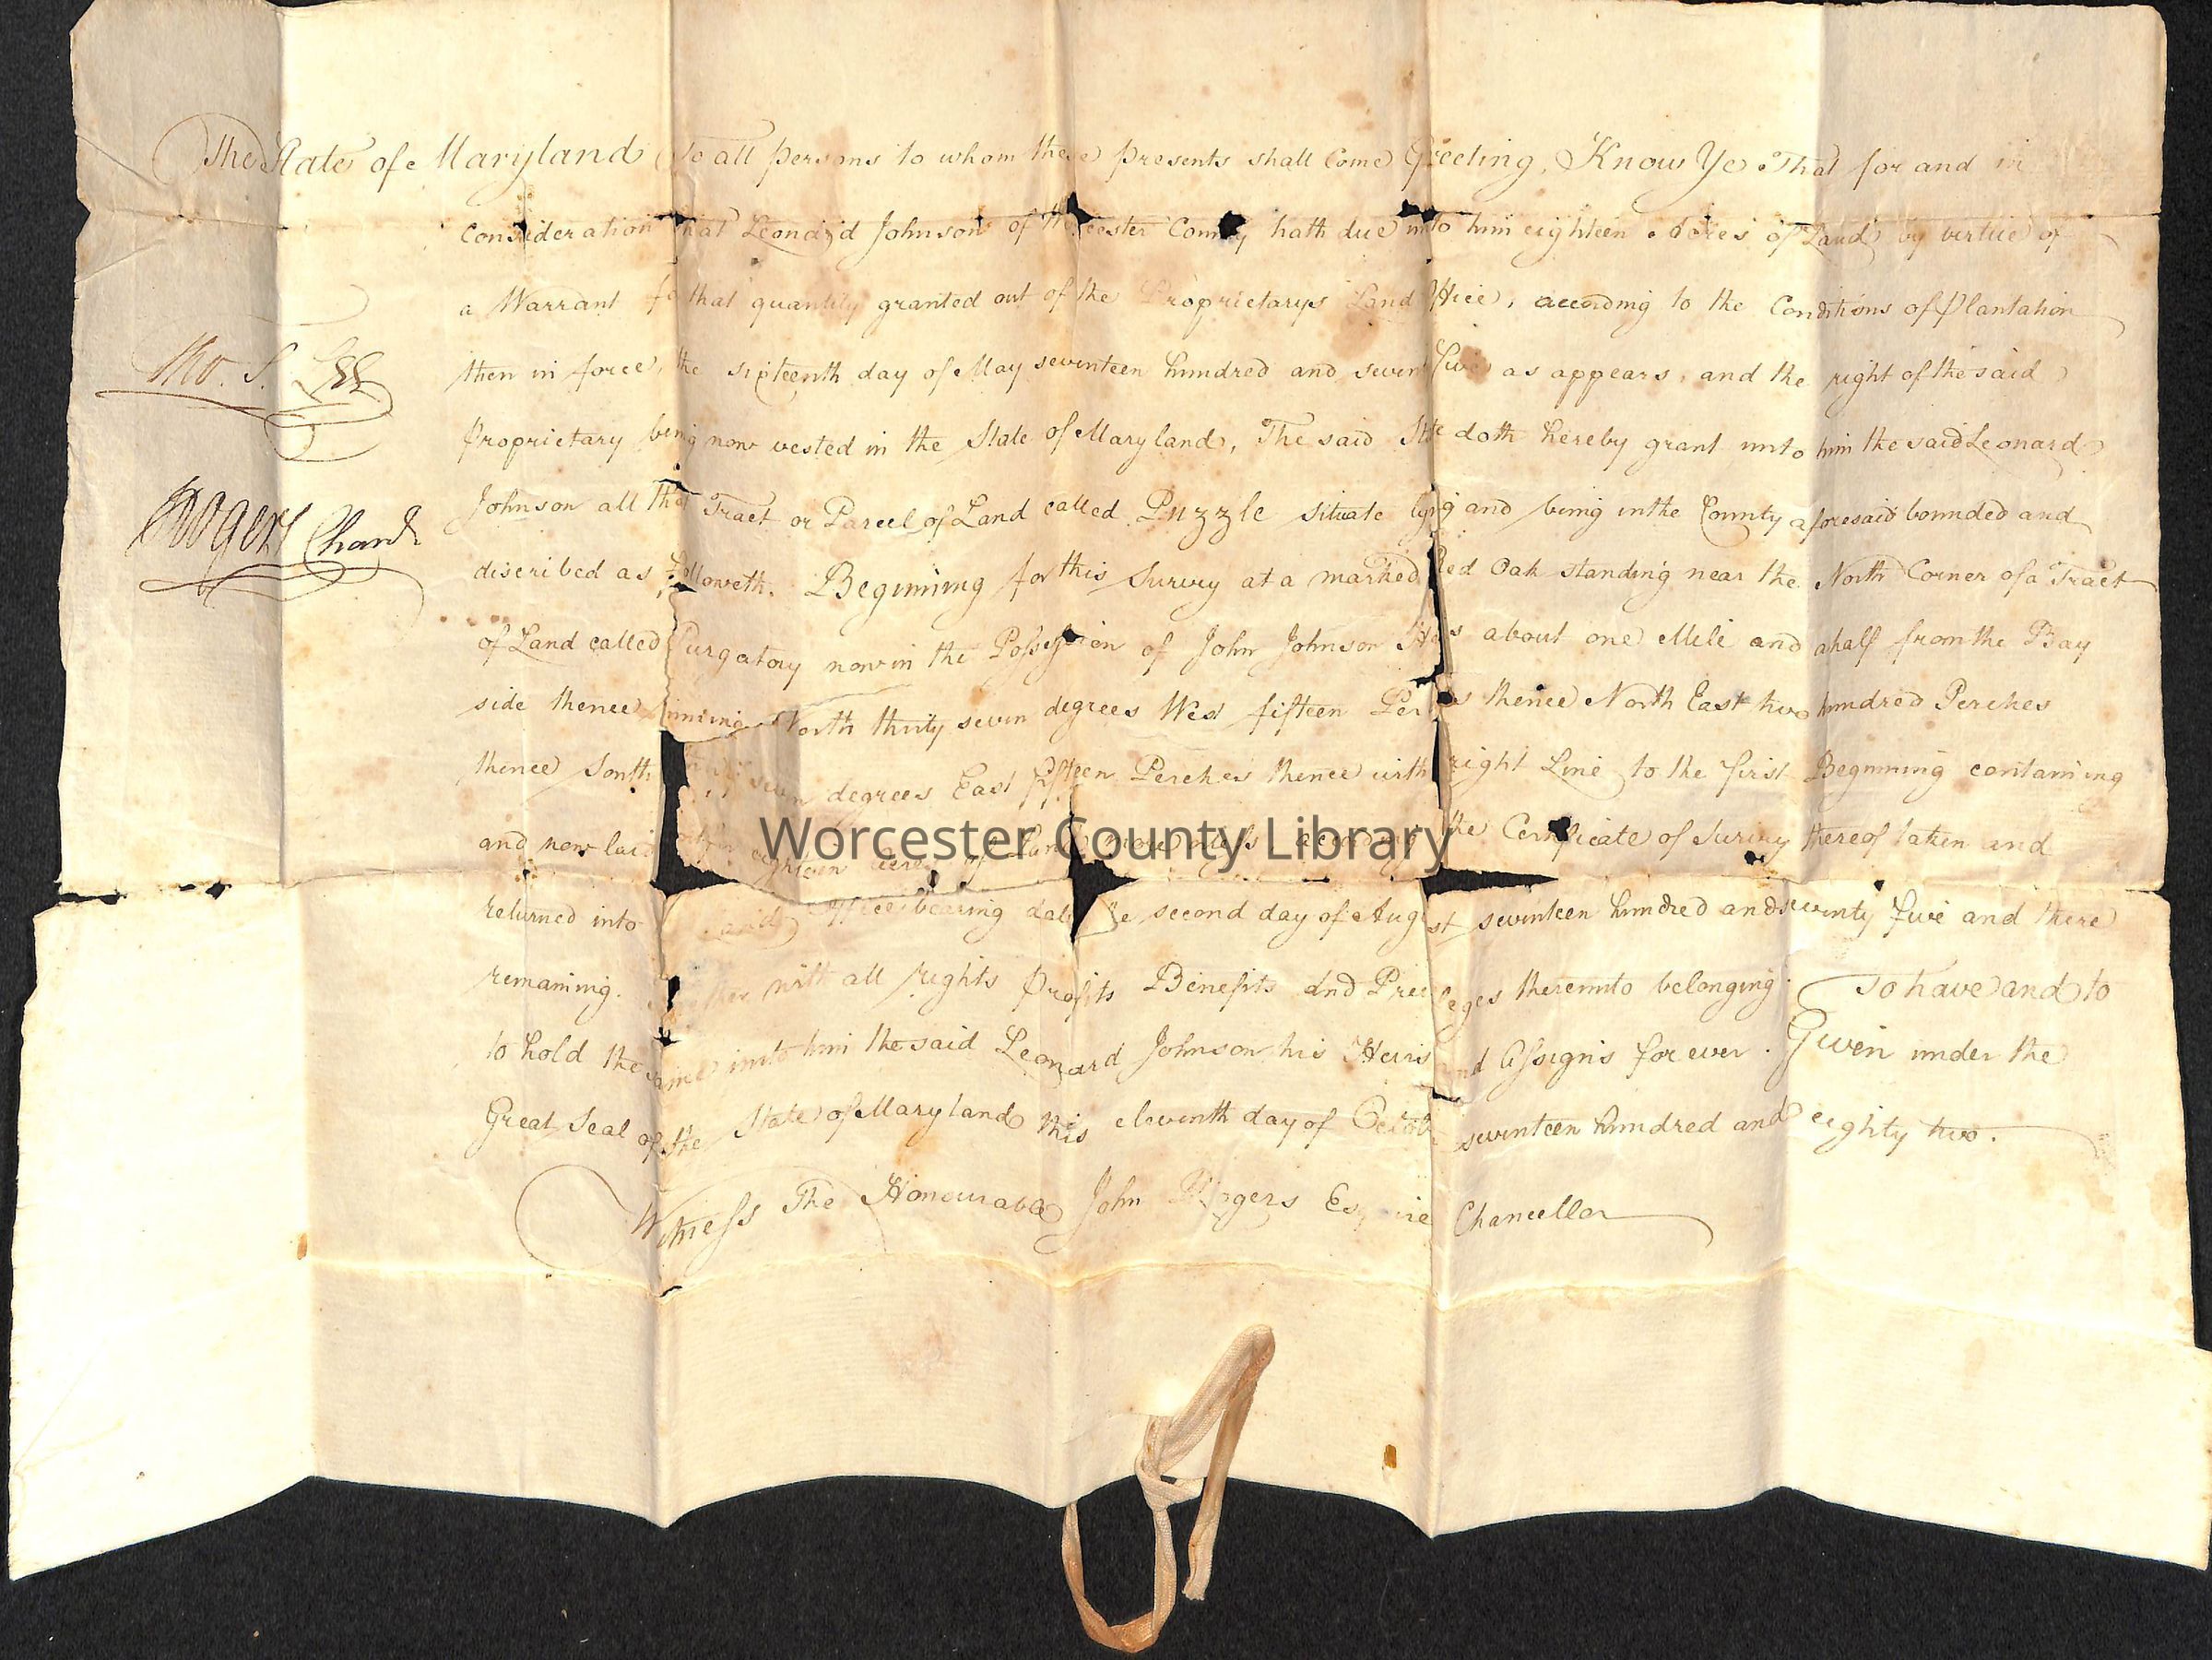 The State of Maryland To all persons to whom these presents shall Come Greeting, Know Ye That for and in
Consideration that Leonard Johnson of Worcester County hath due unto him eighteen Acres of Land by virtue of
a Warrant for that quantity granted out of the Proprietarys Land Office, according to the Conditions of Plantation
then in force, the sixteenth day of May seventeen hundred and seven five as appears, and the right of the said
Proprietary being now vested in the State of Maryland, The said State doth hereby grant unto him the said Leonard
Johnson all that Tract or Parcel of Land called Puzzle situate lying and being in the County aforesaid bounded and
discribed as followeth. Beginning for this Survey at a marked Red Oak standing near the North Corner of a Tract
of Land called Purgatory now in the Possession of John Johnson about one Mile and a half from the Bay
side thence running North thirty seven degrees West fifteen Perches thence North East two hundred Perches
thence South thirty seven degrees East fifteen Perches thence with right Line to the first Beginning containing
and now laid eighteen Acres of Land more or less according the Certificate of Survey thereof taken and
returned into Land Office bearing date the second day of August seventeen hundred and seventy five and there
remaining. Together with all rights Profits Benefits and Privileges thereunto belonging. To have and to
to hold the same unto him the said Leonard Johnson his Heirs and Assigns for ever. Given under the
Great Seal of the State of Maryland this eleventh day of October seventeen hundred and eighty two.
Witness The Honourable John Rogers Esquire Chancellor
Tho. S. Lee
Rogers Chan
Worcester County Library